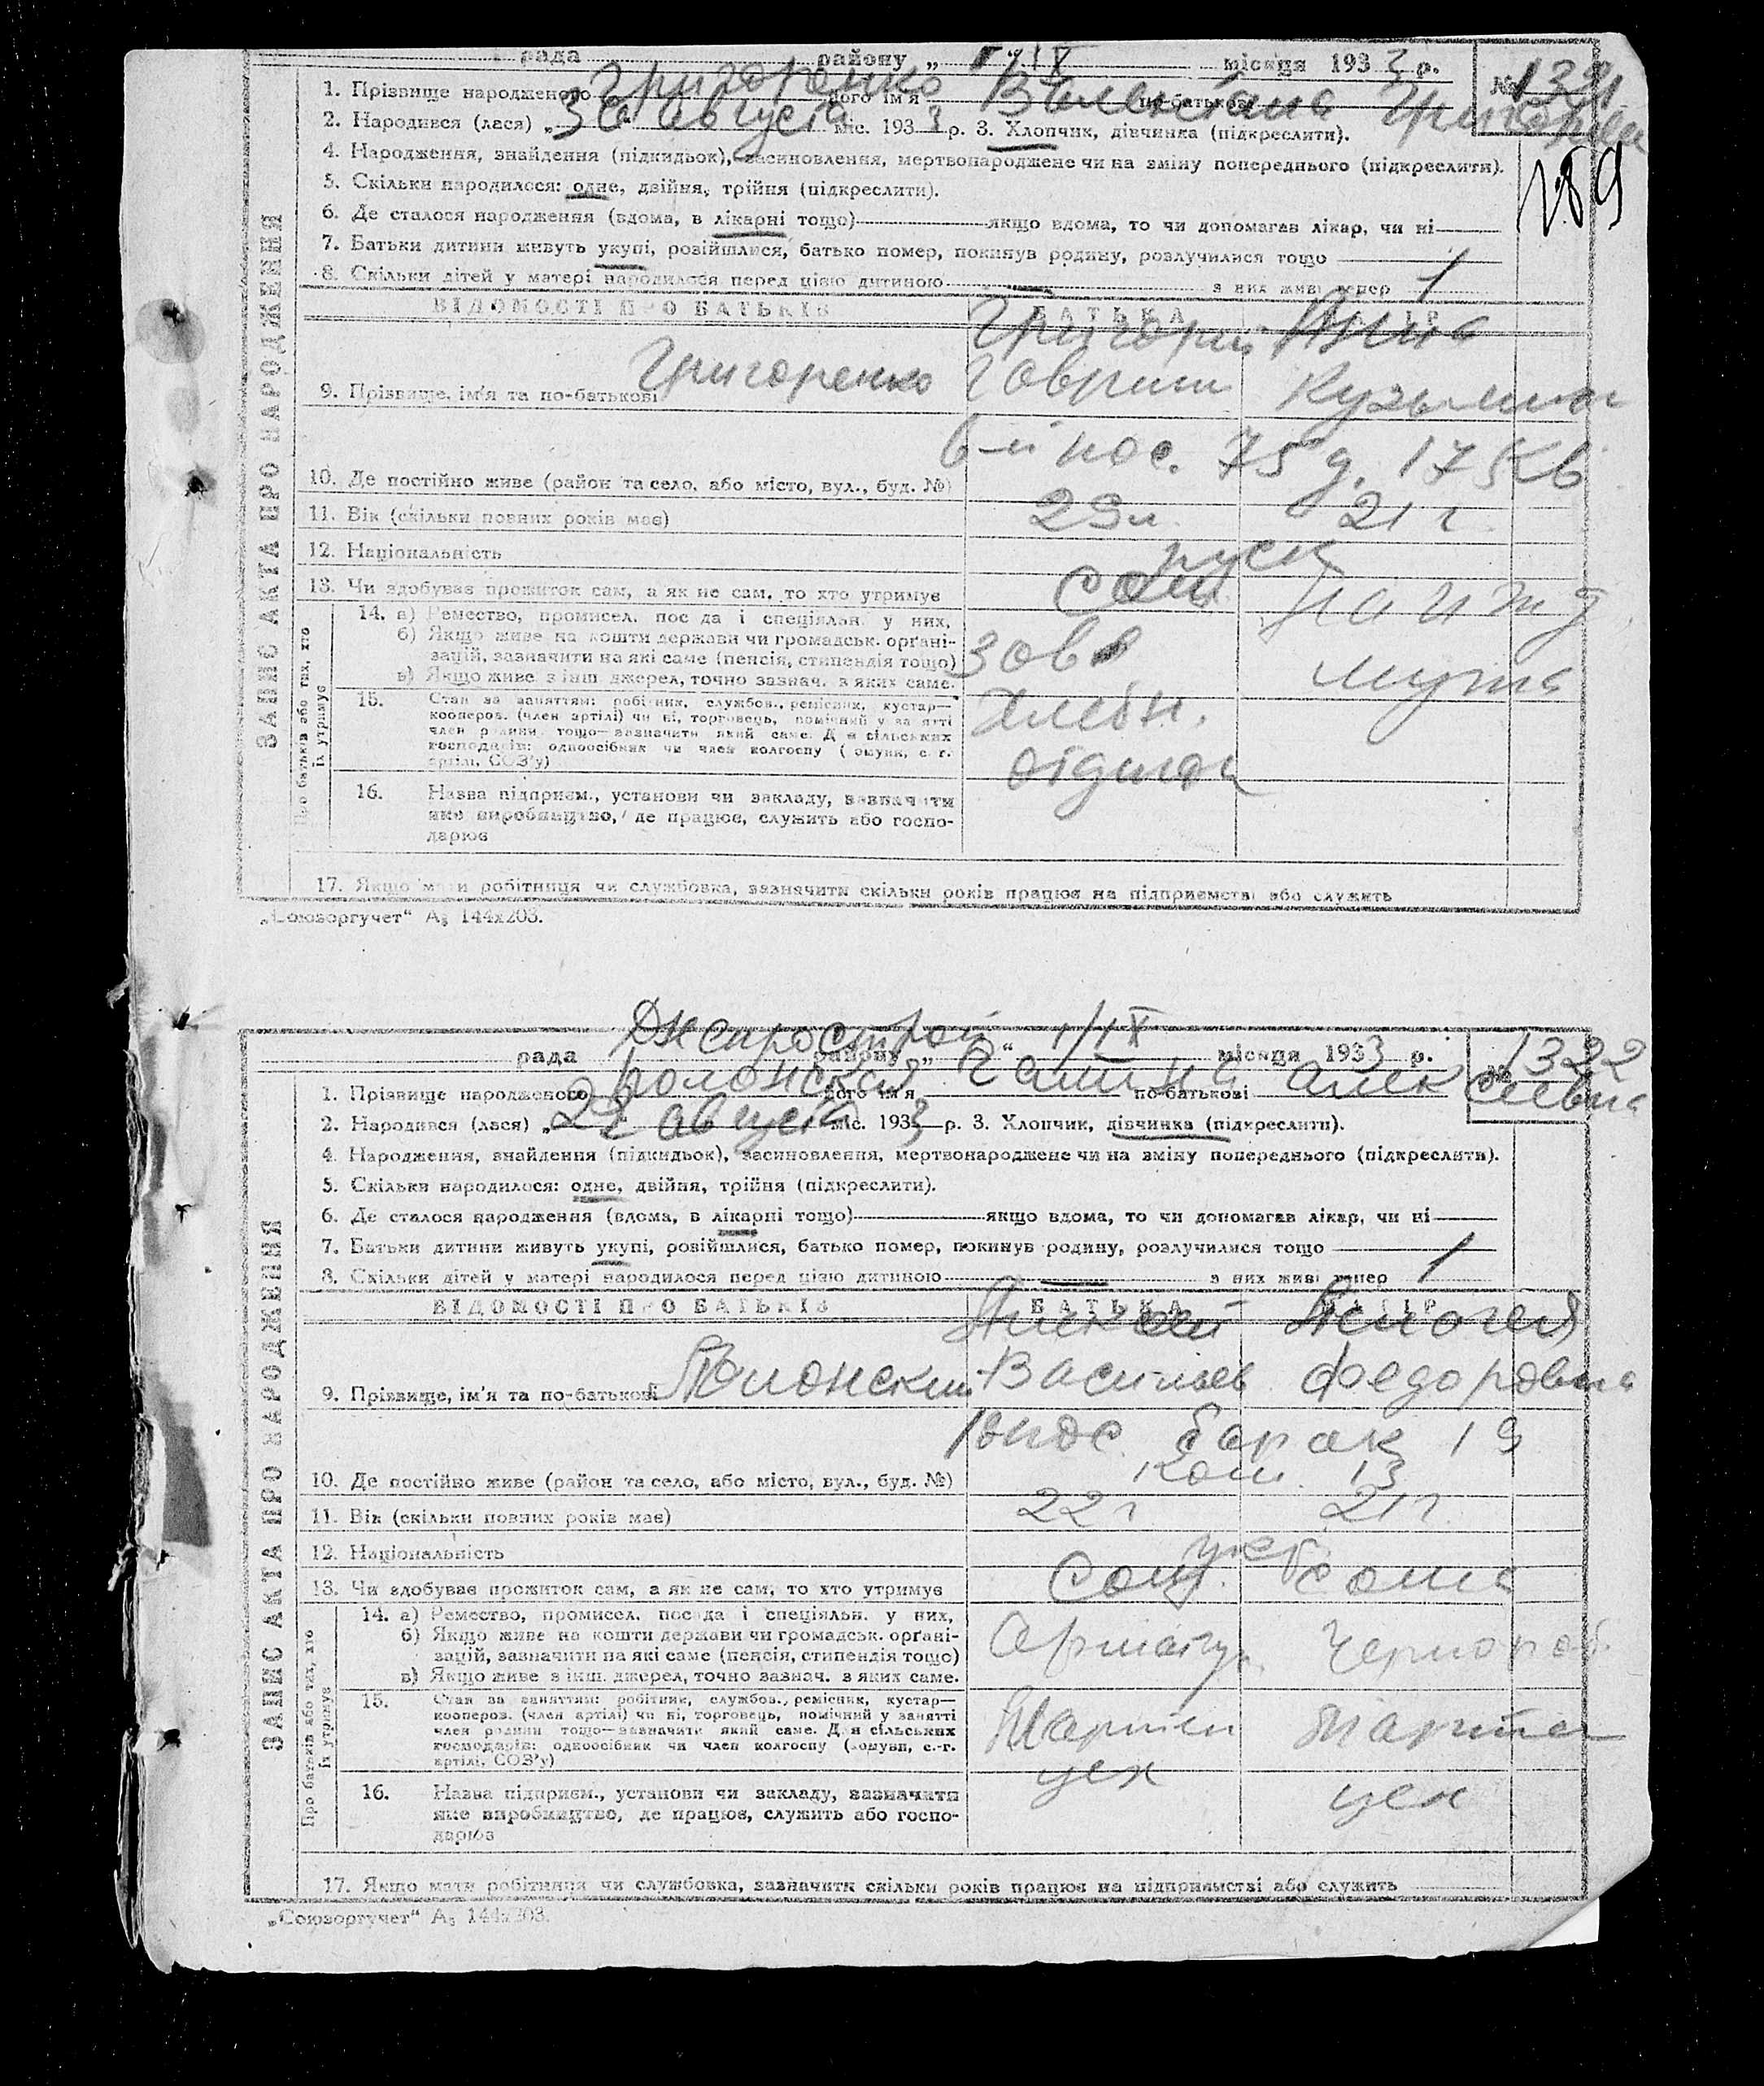 рада району „ 1/IX місяця 1933 р.
№ 1321
1. Прізвище народженого Григоренко його ім'я по-батькові
2. Народився (лася) „30 августа міс. 1933 р. 3. Хлопчик, дівчинка (підкреслити).
4. Народження, знайдення (підкидьок), засиновлення, мертвонароджене чи на зміну попереднього (підкреслити).
189
5. Скільки народилося: одне, двійня, трійня (підкреслити).
6. Де сталося народження (вдома, в лікарні тощо) якщо вдома, то чи допомагав лікар, чи ні
7. Батьки дитини живуть укупі, розійшлися, батько помер, покинув родину, розлучилися тощо
8. Скільки дітей у матері народилося перед цією дитиною — з них живі тепер 1
ЗАПИС АКТА ПРО НАРОДЖЕННЯ
ВІДОМОСТІ ПРО БАТЬКІВ БАТЬКА МАТІР
Григорий Анна
9. Прізвище, ім'я та по-батькові Григоренко Гаврил Кузьмин
6-й пос. 75 д. 17 кв
10. Де постійно живе (район та село, або місто, вул., буд. №)
11. Вік (скільки повних років має) 29 л. 21 г.
12. Національність руск
13. Чи здобував прожиток сам, а як не сам, то хто утримує сам на ижд.
Про батьків або тих, хто їх утримує
14. а) Ремество, промисел, посада і спеціяльн. у них,
б) Якщо живе на кошти держави чи громадськ. орґані-
зацій, зазначити на які саме (пенсія, стипендія тощо) зав мужа
в) Якщо живе з інш. джерел, точно зазнач. з яких саме.
15. Стан за заняттям: робітник, службов., ремісник, кустар—
кооперов. (член артілі) чи ні, торговець, помічний у занятті
член родини тощо—зазначити який саме. Для сільських
господарів: одноосібник чи член колгоспу (комуни, с.-г.
артілі, СОЗ'у)
16. Назва підприєм., установи чи закладу, зазначити
яке виробництво, де працює, служить або госпо-
дарює
17. Якщо мати робітниця чи службовка, зазначити скільки років працює на підприємстві або служить
„Союзоргучет“ А₅ 144x203.
Днепрострой
рада району „ “ 1/IX місяця 1933 р.
№ 1322
1. Прізвище народженого Полонская його ім'я Галина по-батькові Алексеевна
2. Народився (лася) „ августа міс. 1933 р. 3. Хлопчик, дівчинка (підкреслити).
4. Народження, знайдення (підкидьок), засиновлення, мертвонароджене чи на зміну попереднього (підкреслити).
5. Скільки народилося: одне, двійня, трійня (підкреслити).
6. Де сталося народження (вдома, в лікарні тощо) якщо вдома, то чи допомагав лікар, чи ні
7. Батьки дитини живуть укупі, розійшлися, батько помер, покинув родину, розлучилися тощо
8. Скільки дітей у матері народилося перед цією дитиною — з них живі тепер 1
ЗАПИС АКТА ПРО НАРОДЖЕННЯ
ВІДОМОСТІ ПРО БАТЬКІВ БАТЬКА МАТІР
Алексей
9. Прізвище, ім'я та по-батькові Полонский Васильев Федоровна
пос. барак 19
10. Де постійно живе (район та село, або місто, вул., буд. №) ком. 13
11. Вік (скільки повних років має) 22 г 21 г.
12. Національність укр
13. Чи здобував прожиток сам, а як не сам, то хто утримує сам. сама
Про батьків або тих, хто їх утримує
14. а) Ремество, промисел, посада і спеціяльн. у них,
б) Якщо живе на кошти держави чи громадськ. орґані- Арматур. Чернораб.
зацій, зазначити на які саме (пенсія, стипендія тощо)
в) Якщо живе з інш. джерел, точно зазнач. з яких саме.
15. Стан за заняттям: робітник, службов., ремісник, кустар—
кооперов. (член артілі) чи ні, торговець, помічний у занятті
член родини тощо—зазначити який саме. Для сільських Мартен Мартен
господарів: одноосібник чи член колгоспу (комуни, с.-г.
артілі, СОЗ'у)
цех цех
16. Назва підприєм., установи чи закладу, зазначити
яке виробництво, де працює, служить або госпо-
дарює
17. Якщо мати робітниця чи службовка, зазначити скільки років працює на підприємстві або служить
„Союзоргучет“ А₅ 144x203.